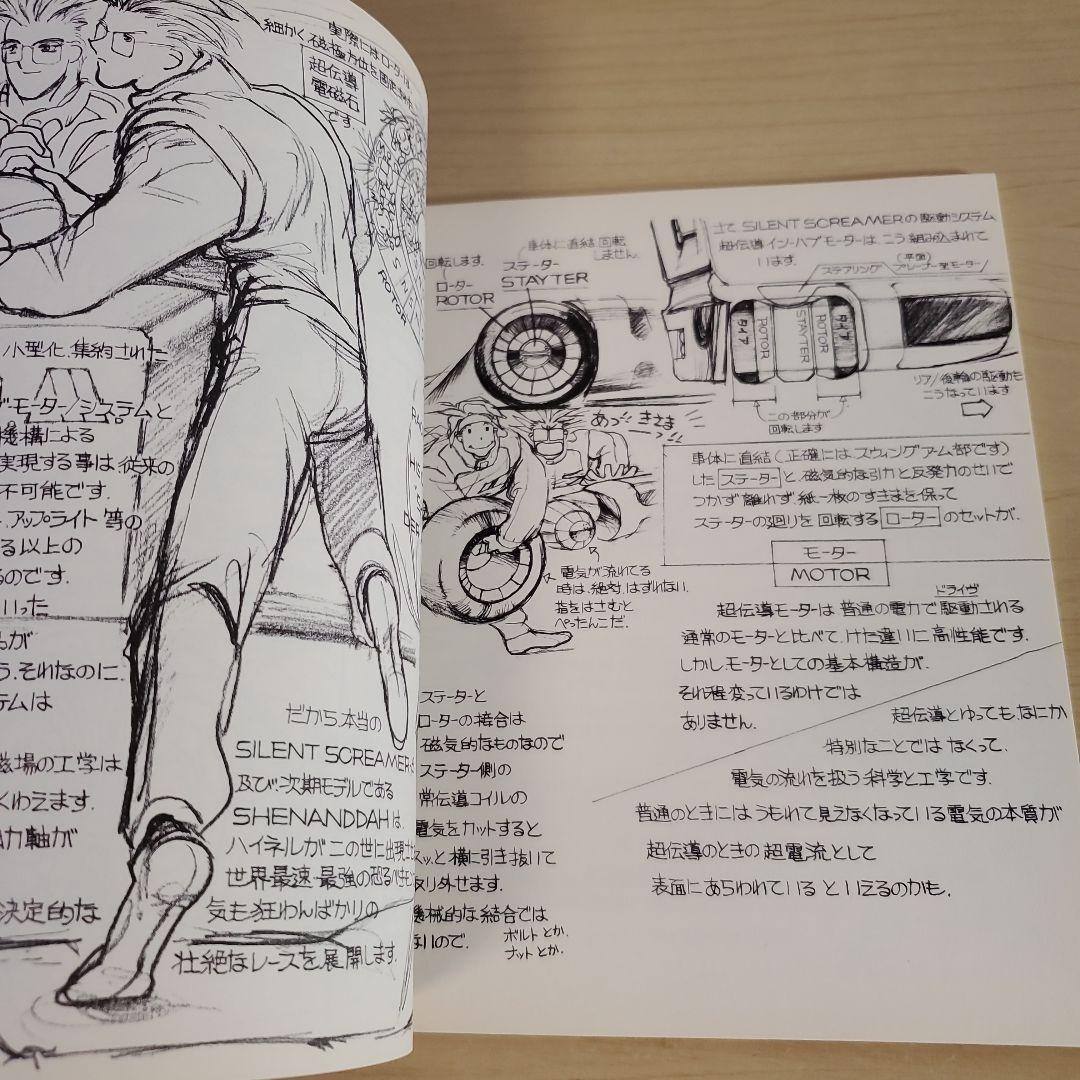 実際にはローターは
細かく磁極方位を固定された
超伝導
電磁石
です。
ROTOR
小型化.集約された
モーターシステムと
機構による
実現する事は従来の
不可能です.
アップライト等の
る以上の
るのです.
いった
が
う.それなのに.
テムは
磁場の工学は
くわえます.
力軸が
決定的な
だから.本当の
SILENT SCREAMER.
及び.次期モデルである
SHENANDDAHは.
ハイネルがこの世に出現させた
世界最速.最強の恐るべき
気も狂わんばかりの
壮絶なレースを.展開します.
車体に直結 回転
しません.
回転します.
ローター
ROTOR
ステーター
STAYTER
さて SILENT SCREAMERの駆動システム
超伝導イン-ハブモーターは.こう組み込まれて
います.
ステアリング
(平面)
プレーナー型モーター
タイヤ
ROTOR
STAYTER
ROTOR
タイヤ
リア/後輪の駆動も
こうなっています
この部分が
回転します
あっ!!きさま
ーっ!!
車体に直結(正確にはスウィングアーム部です)
した ステーター と 磁気的な引力と反発力のせいで
つかず離れず紙一枚のすきまを保って
ステーターの廻りを回転する ローター のセットが.
モーター
MOTOR
電気が流れてる
時は.絶対.はずれない.
指をはさむと
ぺったんこだ.
ドライヴ
超伝導モーターは普通の電力で駆動される
通常のモーターと比べて.けた違いに高性能です.
しかしモーターとしての基本構造が.
それ程変っているわけでは
ありません.
超伝導とゆっても.なにか
特別なことではなくって.
電気の流れを扱う科学と工学です.
普通のときにはうもれて見えなくなっている電気の本質が
超伝導のときの超電流として
表面にあらわれているといえるのかも.
ステーターと
ローターの接合は
磁気的なものなので
ステーター側の
常伝導コイルの
電気をカットすると
スッと横に引き抜いて
取り外せます.
機械的な結合では
ないので.
ボルトとか.
ナットとか.